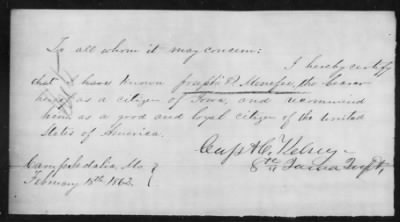 To all whom it may concern:
I hereby certify
that I have known Joseph P. Menefee, the bearer
hereof as a citizen of Iowa, and recommend
him as a good and loyal citizen of the United
States of America.
Capt
8th Iowa
Camp Sedalia, Mo
February 18th 1862.